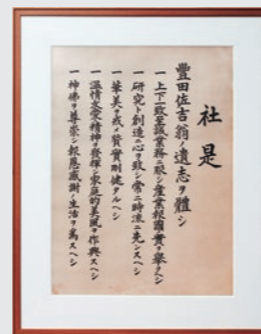 社是
豊田佐吉翁ノ遺志ヲ體シ
一 上下一致至誠業務ニ服シ産業報國ノ實ヲ擧クヘシ
一 研究ト創造ニ心ヲ致シ常ニ時流ニ先ンスヘシ
一 華美ヲ戒メ質實剛健タルヘシ
一 溫情友愛ノ精神ヲ發揮シ家庭的美風ヲ作興スヘシ
一 神佛ヲ尊崇シ報恩感謝ノ生活ヲ爲スヘシ